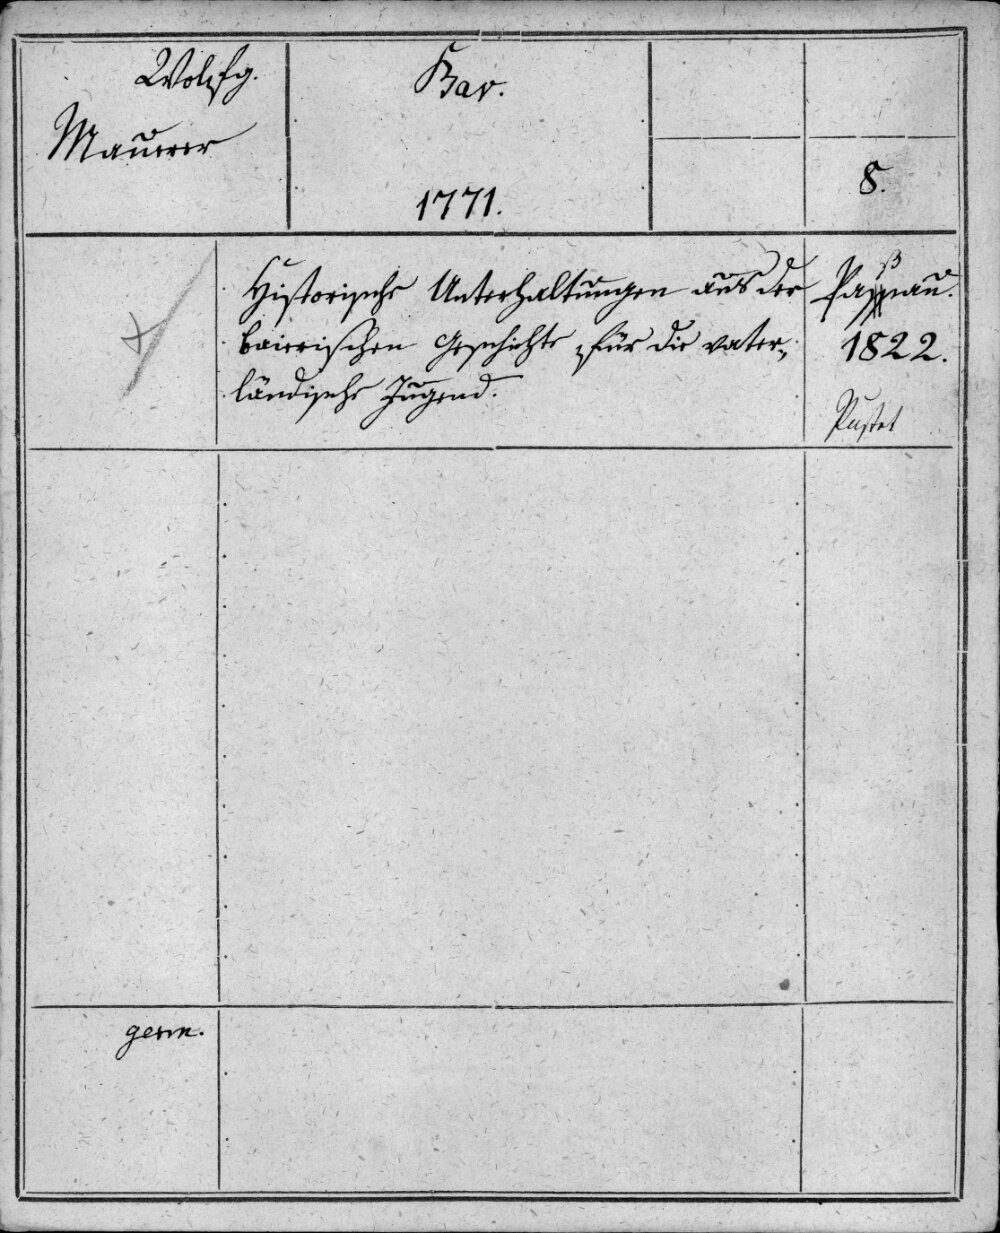 Wolfg.
Maurer
Bav.
1771.
8.
Historische Unterhaltungen aus der
baierischen Geschichte für die vater-
ländische Jugend.
Paßau.
1822.
Pustet
germ.